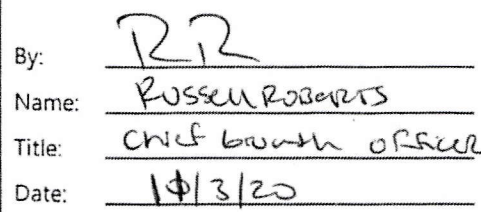 By: RR
Name: Russell Roberts
Title: Chief Growth Officer
Date: 10/3/20